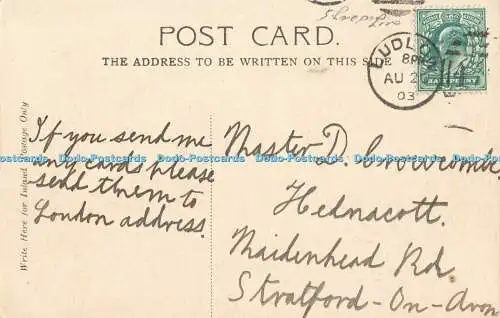 Shropshire
POST CARD.
THE ADDRESS TO BE WRITTEN ON THIS SIDE
LUDLOW
8 PM
AU 2
03
HALFPENNY
Write Here for Inland Postage Only
If you send me
any cards please
send them to
London address.
Master D. Crowcombe,
Dodo-Postcards Dodo-Postcards Dodo-Postcards Dodo-Postcards Dodo-Postcards Dodo-Postcards
Hednacott.
Maidenhead Rd
Stratford-On-Avon